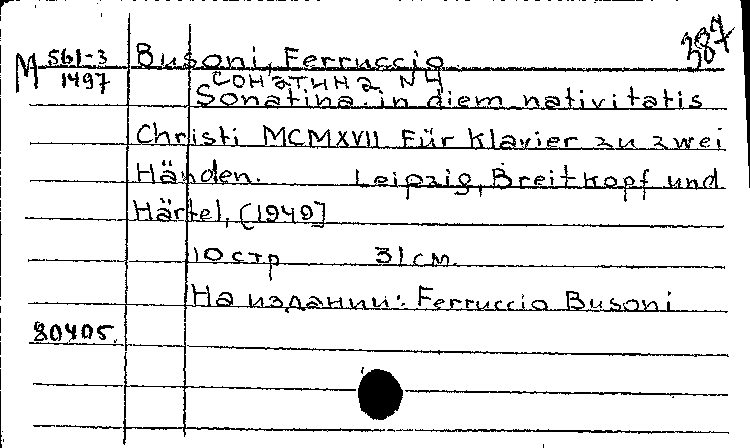 387
М 561-3
1497
Busoni, Ferruccio
Сонатина N 4
Sonatina in diem nativitatis
Christi MCMXVII Für Klavier zu zwei
Händen. Leipzig, Breitkopf und
Härtel, [1949]
10 стр 31 см.
На издании: Ferruccio Busoni
80405.